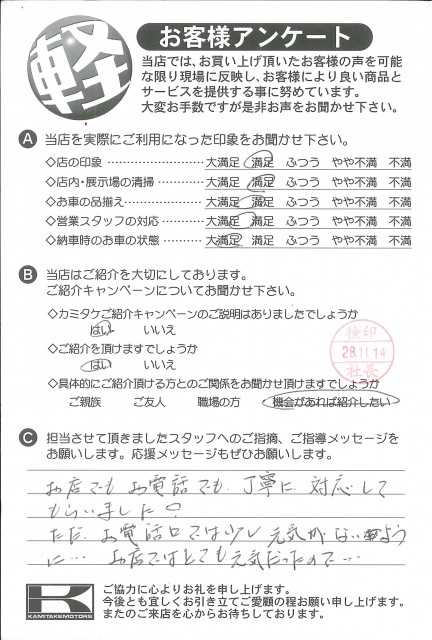 軽
お客様アンケート
当店では、お買い上げ頂いたお客様の声を可能
な限り現場に反映し、お客様により良い商品と
サービスを提供する事に努めています。
大変お手数ですが是非お声をお聞かせ下さい。
A 当店を実際にご利用になった印象をお聞かせ下さい。
◇店の印象 ………………… 大満足 満足 ふつう やや不満 不満
◇店内・展示場の清掃 ………… 大満足 満足 ふつう やや不満 不満
◇お車の品揃え ……………… 大満足 満足 ふつう やや不満 不満
◇営業スタッフの対応 ………… 大満足 満足 ふつう やや不満 不満
◇納車時のお車の状態 ………… 大満足 満足 ふつう やや不満 不満
B 当店はご紹介を大切にしております。
ご紹介キャンペーンについてお聞かせ下さい。
◇カミタケご紹介キャンペーンのご説明はありましたでしょうか
はい いいえ
◇ご紹介を頂けますでしょうか
はい いいえ
検印
28.11.14
社長
◇具体的にご紹介頂ける方とのご関係をお聞かせ頂けますでしょうか
ご親族 ご友人 職場の方 機会があれば紹介したい
C 担当させて頂きましたスタッフへのご指摘、ご指導メッセージを
お願いします。応援メッセージもぜひお願いします。
お店でもお電話でも、丁寧に対応して
もらいました。
ただ、お電話口では少し元気がないよう
に… お店ではとても元気だったので…
K
KAMITAKEMOTORS
ご協力に心よりお礼を申し上げます。
今後とも宜しくお引き立てご愛顧の程お願い申し上げます。
またのご来店を心からお待ちしております。